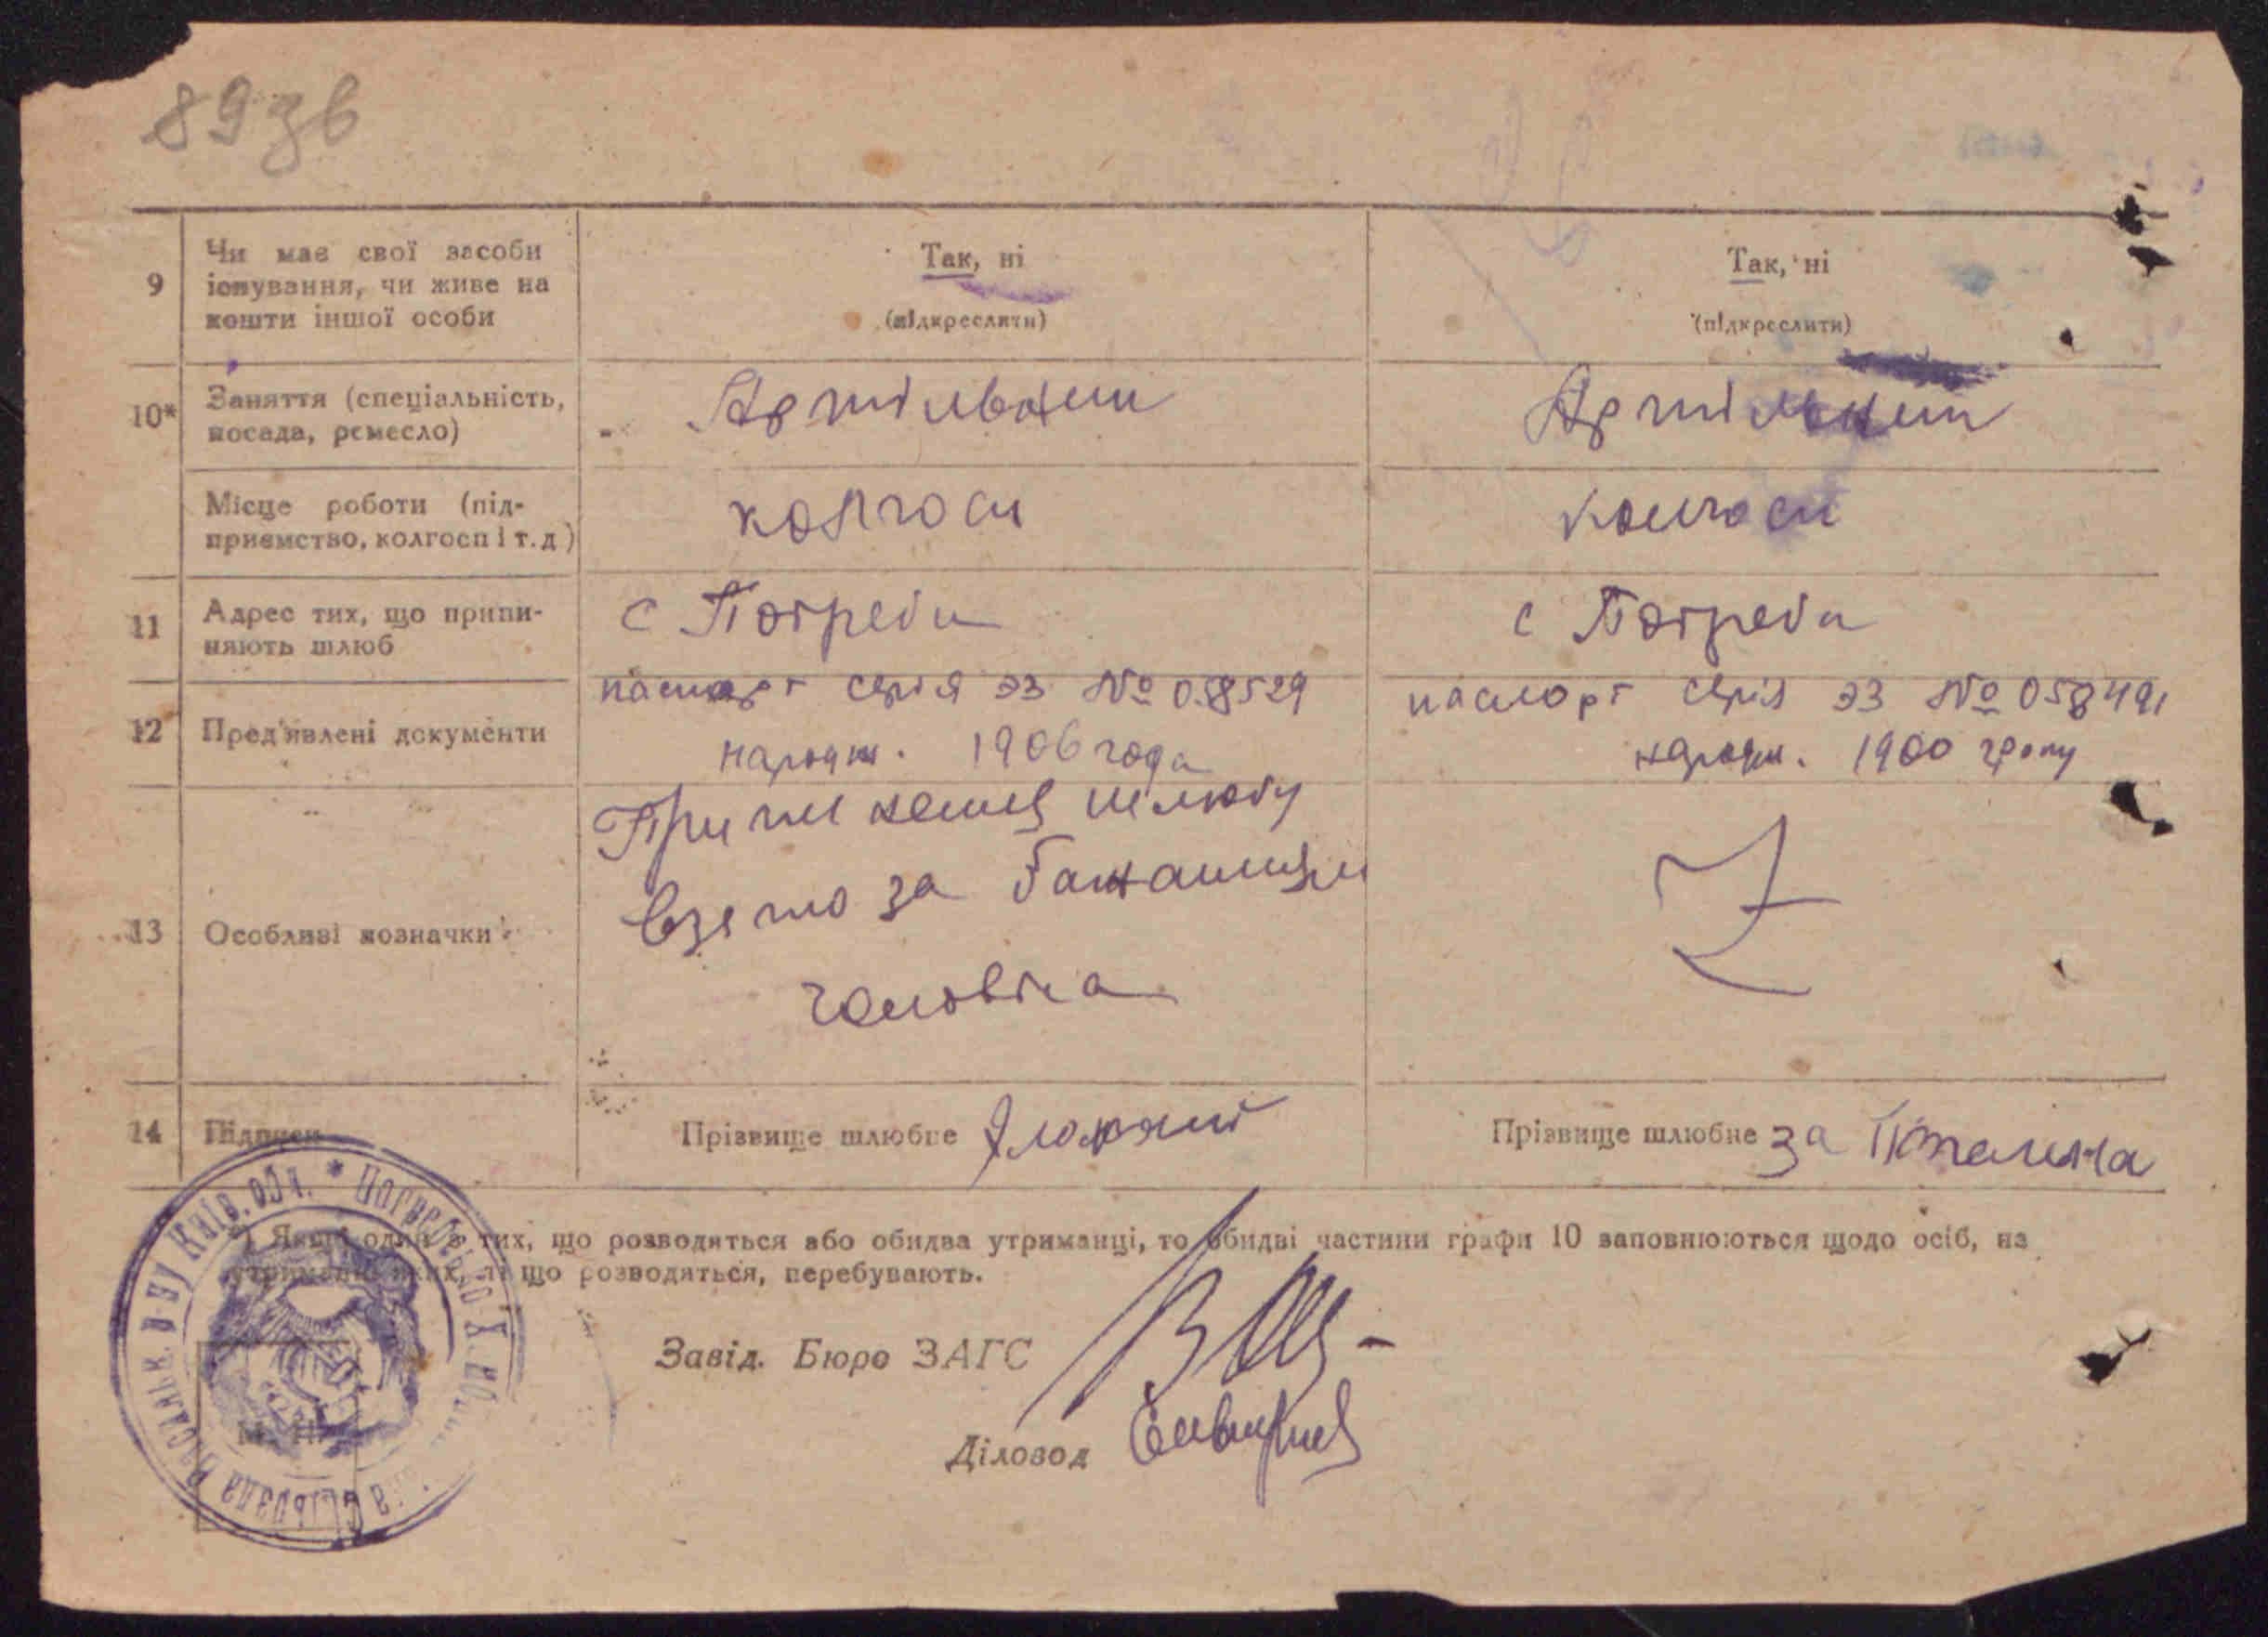 89зв
9 Чи має свої засоби Так, ні Так, ні
існування, чи живе на
кошти іншої особи (підкреслити) (підкреслити)
10* Заняття (спеціальність, Артільник Артільник
посада, ремесло)
Місце роботи (під- колгосп колгосп
приємство, колгосп і т.д)
11 Адрес тих, що припи- с Погреби с Погреби
няють шлюб
паспорт серія ЭЗ № 058529 паспорт серія ЭЗ № 058491
12 Пред'явлені документи народж. 1906 года народж. 1900 року
Припинення шлюбу
взято за бажанням
13 Особливі позначки
чоловіка
14 Підписи Прізвище шлюбне Прізвище шлюбне за
*) Якщо один з тих, що розводяться або обидва утриманці, то обидві частини графи 10 заповнюються щодо осіб, на
утриманні яких, ті що розводяться, перебувають.
Завід. Бюро ЗАГС
Діловод
М. П.